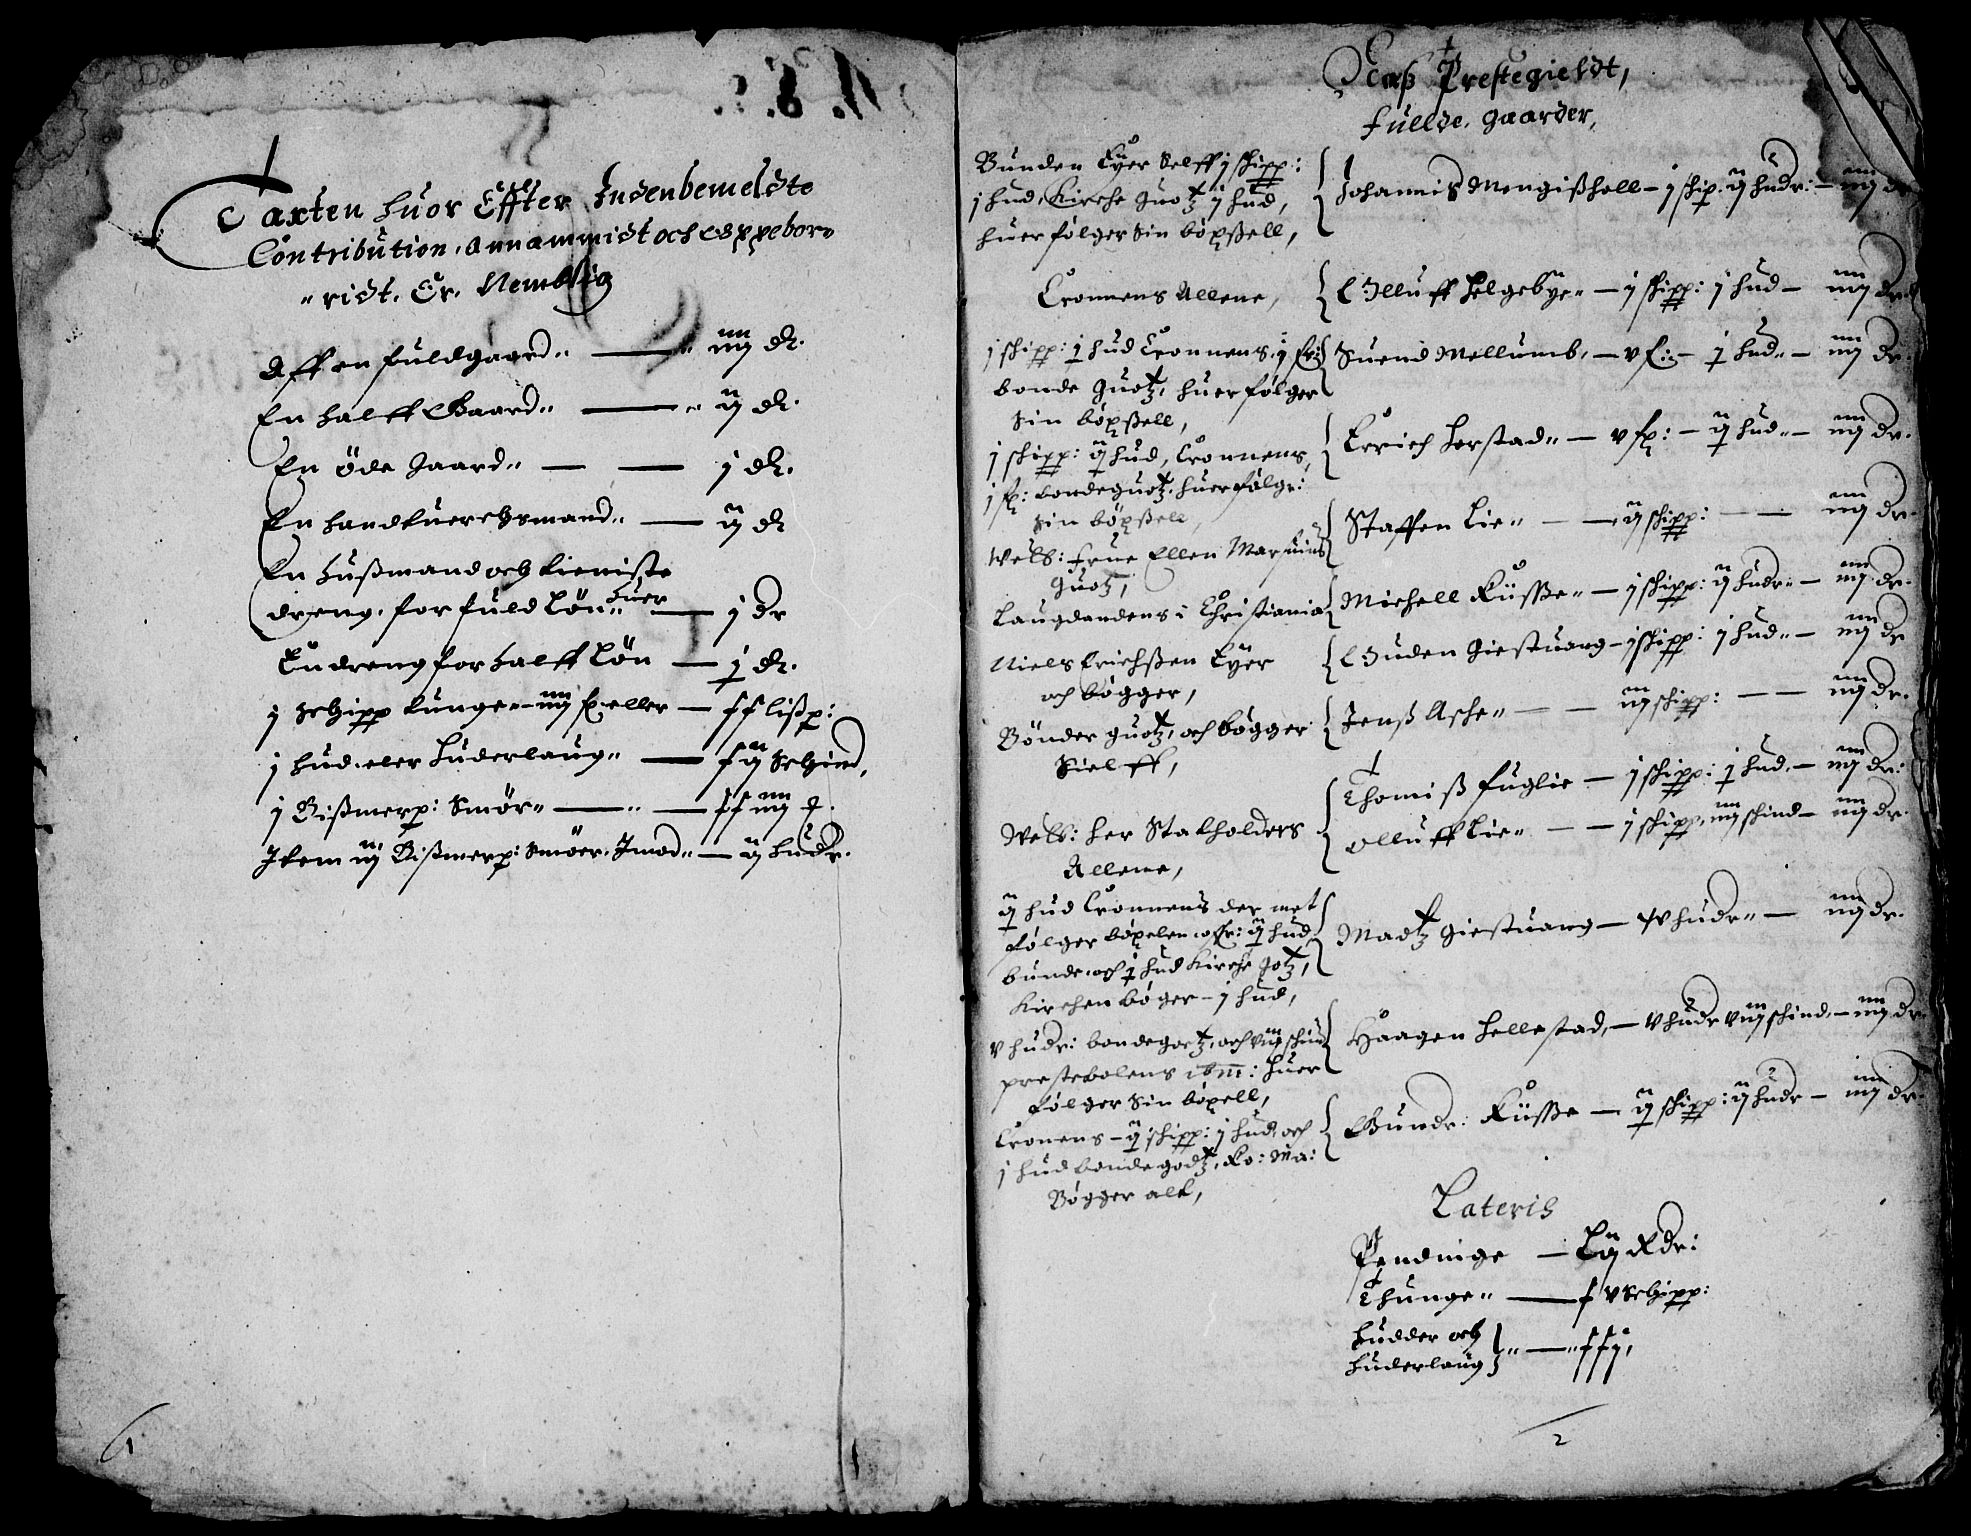 Taxten huor Effter Indenbemeldte
Contribution, annammidt och oppebor=
=ridt, Er, Nemblig
Aff en fuldgaard,, — iiij dr.
En halff Gaard,, — ij dr.
En øde gaard,, — — j dr.
En handtuerchsmand,, — ij dr
En hußmand och tieniste
dreng, for fuld Løn,, huer — j dr
En dreng for halff Løn — j dr.
j schipp tunge — iiij eller — xx lißp:
j hud eler huderlaug,, — xij schind,
j Bißmerp: Smør,, — — xxiiij
Item iij Bißmerp: Smøer, Imod,, — ij hudr.
1
Næß Prestegieldt,
fullde, gaarder,
Bunden Eÿer selff j schipp:
j hud, Kirche guotz j hud,
huer følger sin bøxßell,
Johannis Mengißholl — j schip: ij hudr: — iiij dr
Cronnens Allene,
Olluff Helgebÿe,, — j schipp: j hud — iiij dr.
j schipp: j hud Cronnens, j
bonde guotz, huer følger
sin bøxßell,
Suend Mellumb, — v — j hud,, — iiij dr.
j schipp: ij hud, Cronnens,
j bondeguotz, huer følger:
sin bøxßell,
Errich Herstad,, — v — ij hud,, — iiij dr.
Welb: frue Ellen Marsuins
guotz,
Staffen Lie,, — — ij schipp: — — iiij dr.
Laugdandens i Christiania
Michell Rüsße,, — j schipp: ij hudr,, — iiij dr.
Niels Erichßen Eÿer
och bøgger,
Guden Giestuang — j schipp: j hud,, — iiij dr
Bønder guotz, och bøgger
Sielff,
Jenß Asche,, — — iij schipp: — — iiij dr.
Welb: her Statholders
Allene,
Thomiß fuglie — j schipp: j hud, — iiij dr:
Olluff Lie,, — — j schipp, iiij schind — iiij dr.
ij hud Cronnens der met
følger bøxelen ij hud
bunde, och j hud Kirche gotz,
Kirchen bøger — j hud,
Madtz Giestuang — iv hudr,, — iiij dr.
v hudr: bondegoetz, och viij schind
prestebolens ibm: huer
følger sin bøxell,
Haagen Hellestad, — v hudr viij schind, — iiij dr.
Cronens — ij schipp: j hud, och
j hud bondegodtz, Ko: Ma:
Bøgger alt,
Gundr: Rüsße — ij schipp: ij hudr — iiij dr.
Lateris
Pendinge — Lij Rdr:
Thunge,, — xv schipp:
Hudder och
huderlaug } ,, — ,, xxj,
2